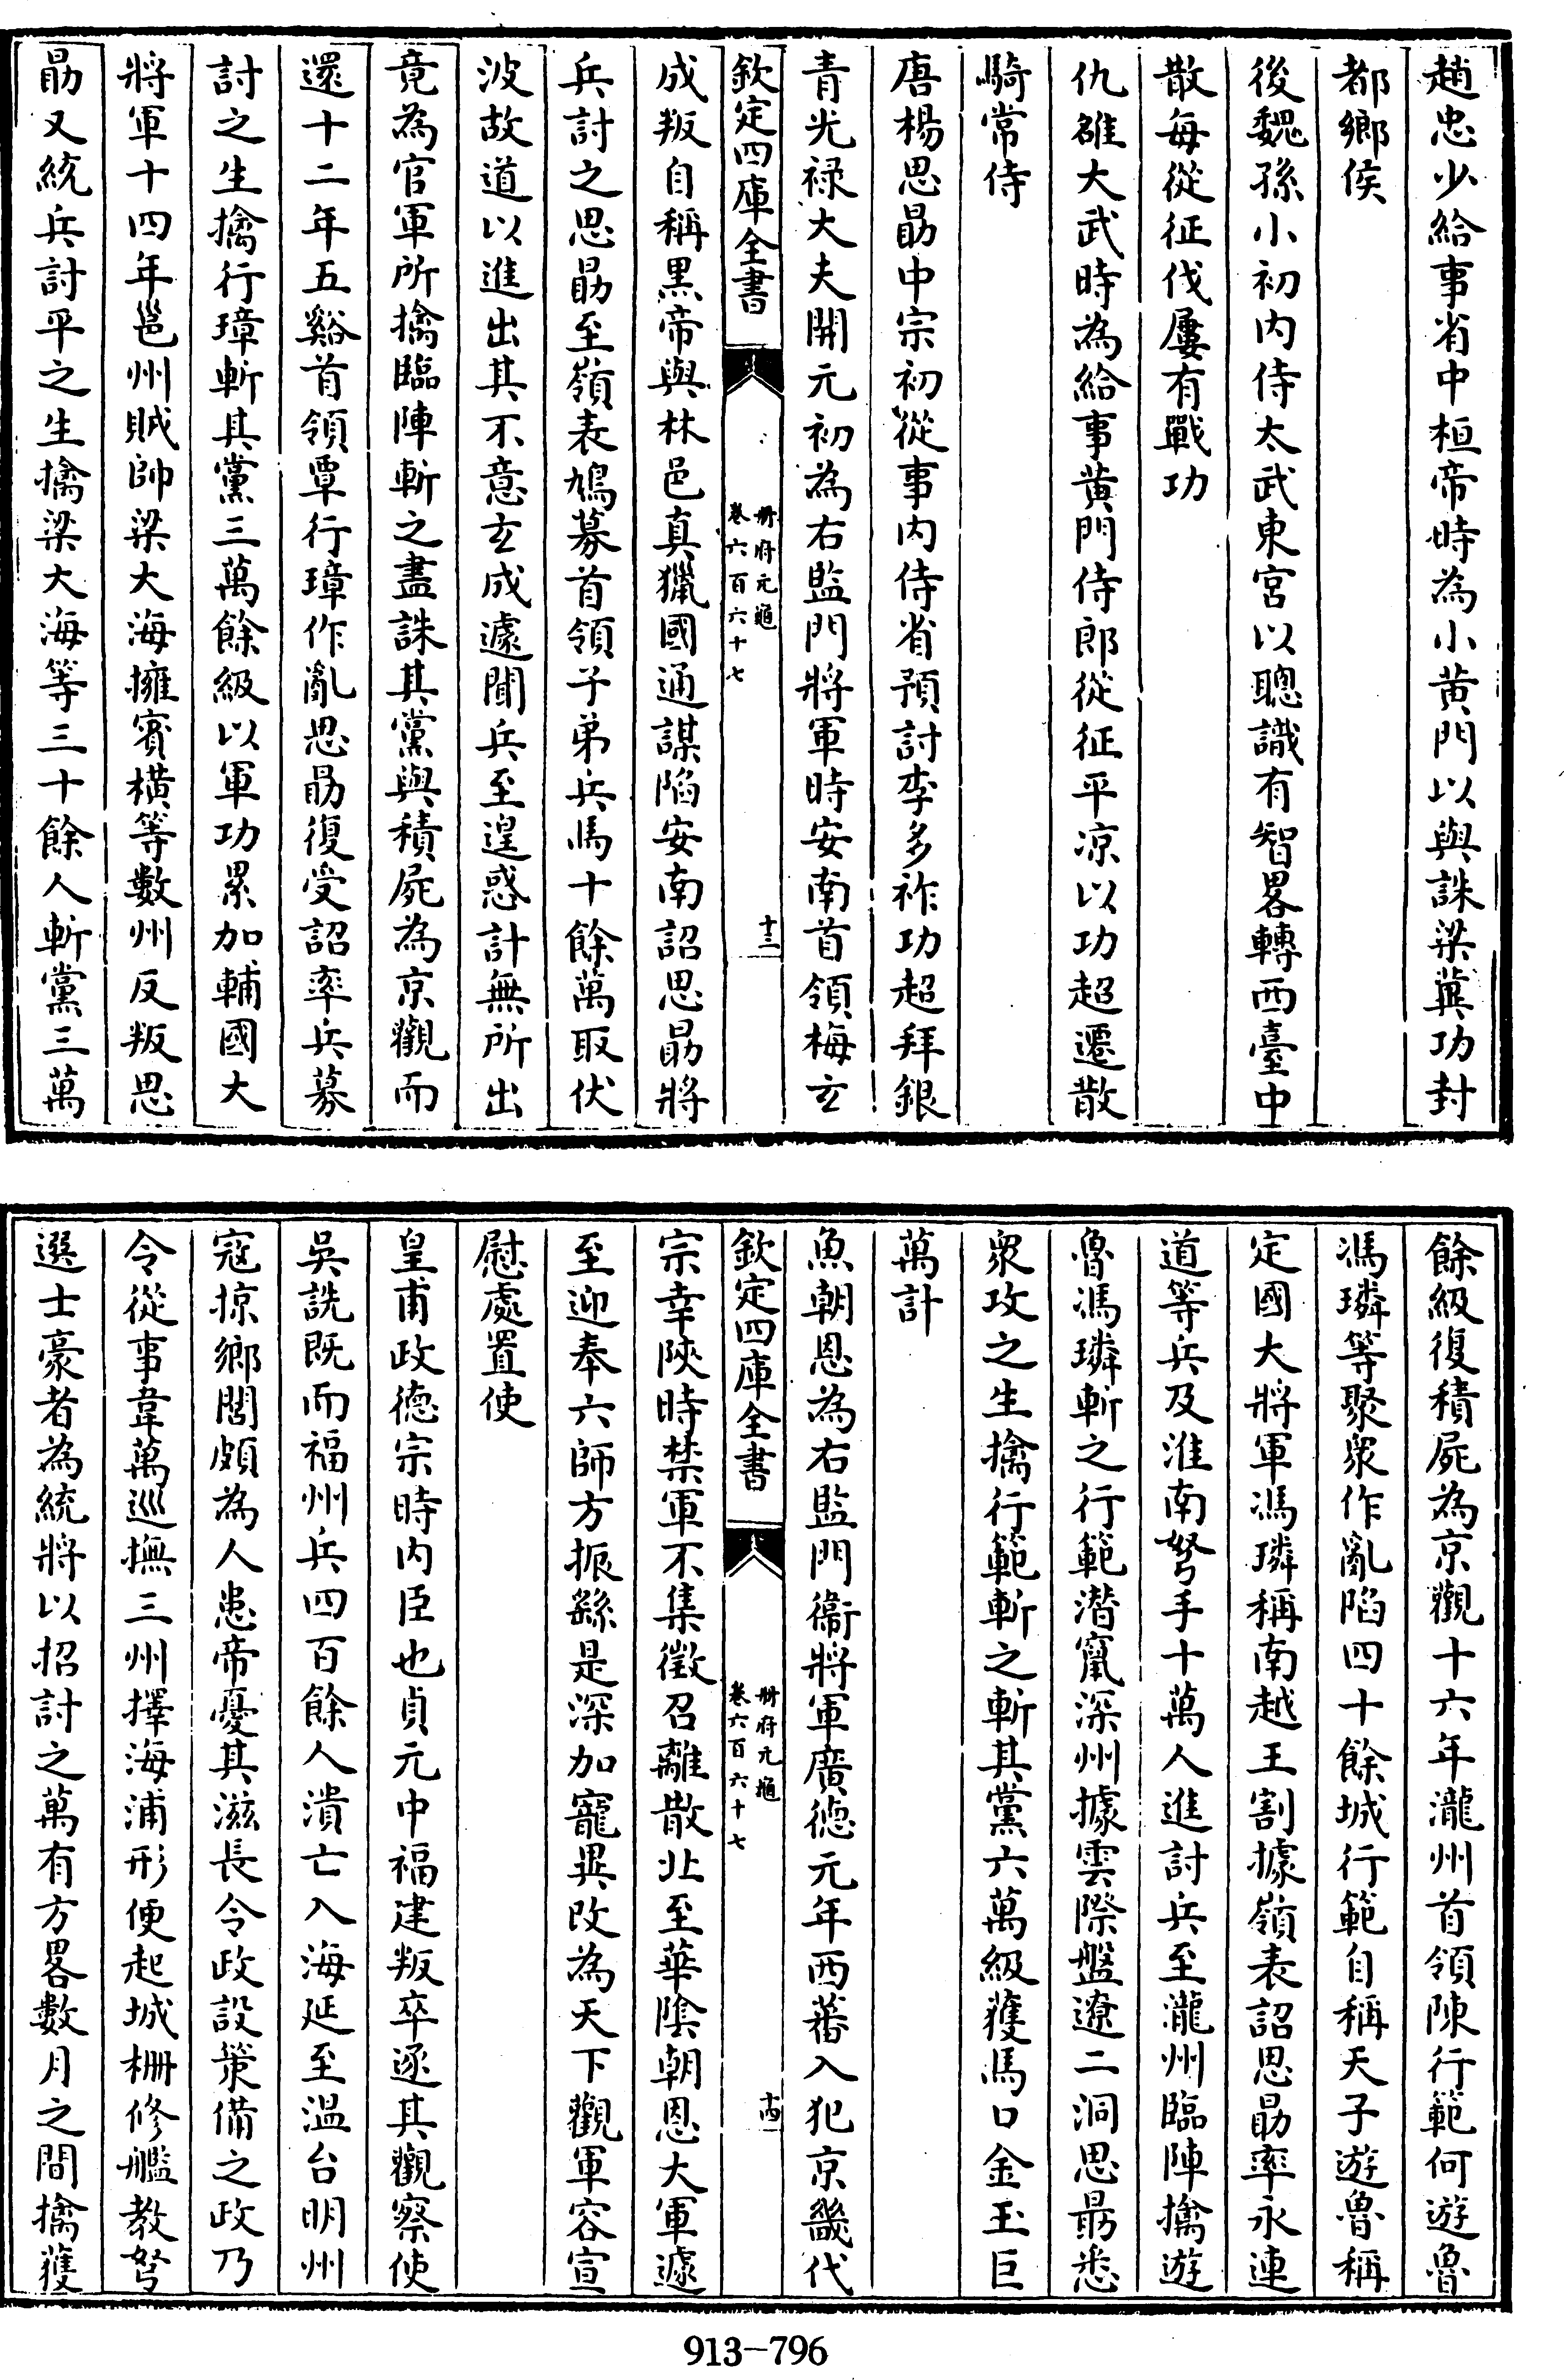 趙忠少給事省中桓帝時為小黄門以與誅梁冀功封
都鄉侯
後魏孫小初内侍太武東宮以聰識有智畧轉西臺中
散每從征伐屢有戰功
仇雒大武時為給事黄門侍郎從征平凉以功超遷散
騎常侍
唐楊思勗中宗初從事内侍省預討李多祚功超拜銀
青光禄大夫開元初為右監門將軍時安南首領梅玄
欽定四庫全書
冊府元龜
卷六百六十七
十三
成叛自稱黒帝與林邑真獵國通謀陷安南詔思勗將
兵討之思勗至嶺表鳩募首領子弟兵馬十餘萬取伏
波故道以進出其不意玄成遽聞兵至遑惑計無所出
竟為官軍所擒臨陣斬之盡誅其黨與積屍為京觀而
還十二年五谿首領覃行璋作亂思勗復受詔率兵募
討之生擒行璋斬其黨三萬餘級以軍功累加輔國大
將軍十四年邕州賊帥梁大海擁賓横等數州反叛思
勗又統兵討平之生擒梁大海等三十餘人斬黨三萬
餘級復積屍為京觀十六年瀧州首領陳行範何遊魯
馮璘等聚衆作亂陷四十餘城行範自稱天子遊魯稱
定國大將軍馮璘稱南越王割據嶺表詔思勗率永連
道等兵及淮南弩手十萬人進討兵至瀧州臨陣擒遊
魯馮璘斬之行範潛竄深州據雲際盤遼二洞思勗悉
衆攻之生擒行範斬之斬其黨六萬級獲馬口金玉巨
萬計
魚朝恩為右監門衞將軍廣德元年西蕃入犯京畿代
欽定四庫全書
冊府元龜
卷六百六十七
十四
宗幸陜時禁軍不集徵召離散北至華陰朝恩大軍遽
至迎奉六師方振繇是深加寵異改為天下觀軍容宣
慰處置使
皇甫政德宗時内臣也貞元中福建叛卒逐其觀察使
吳詵既而福州兵四百餘人潰亡入海延至温台明州
寇掠鄉閭頗為人患帝憂其滋長令政設策備之政乃
令從事韋萬巡撫三州擇海浦形便起城柵修艦教弩
選士豪者為統將以招討之萬有方畧數月之間擒獲
913-796